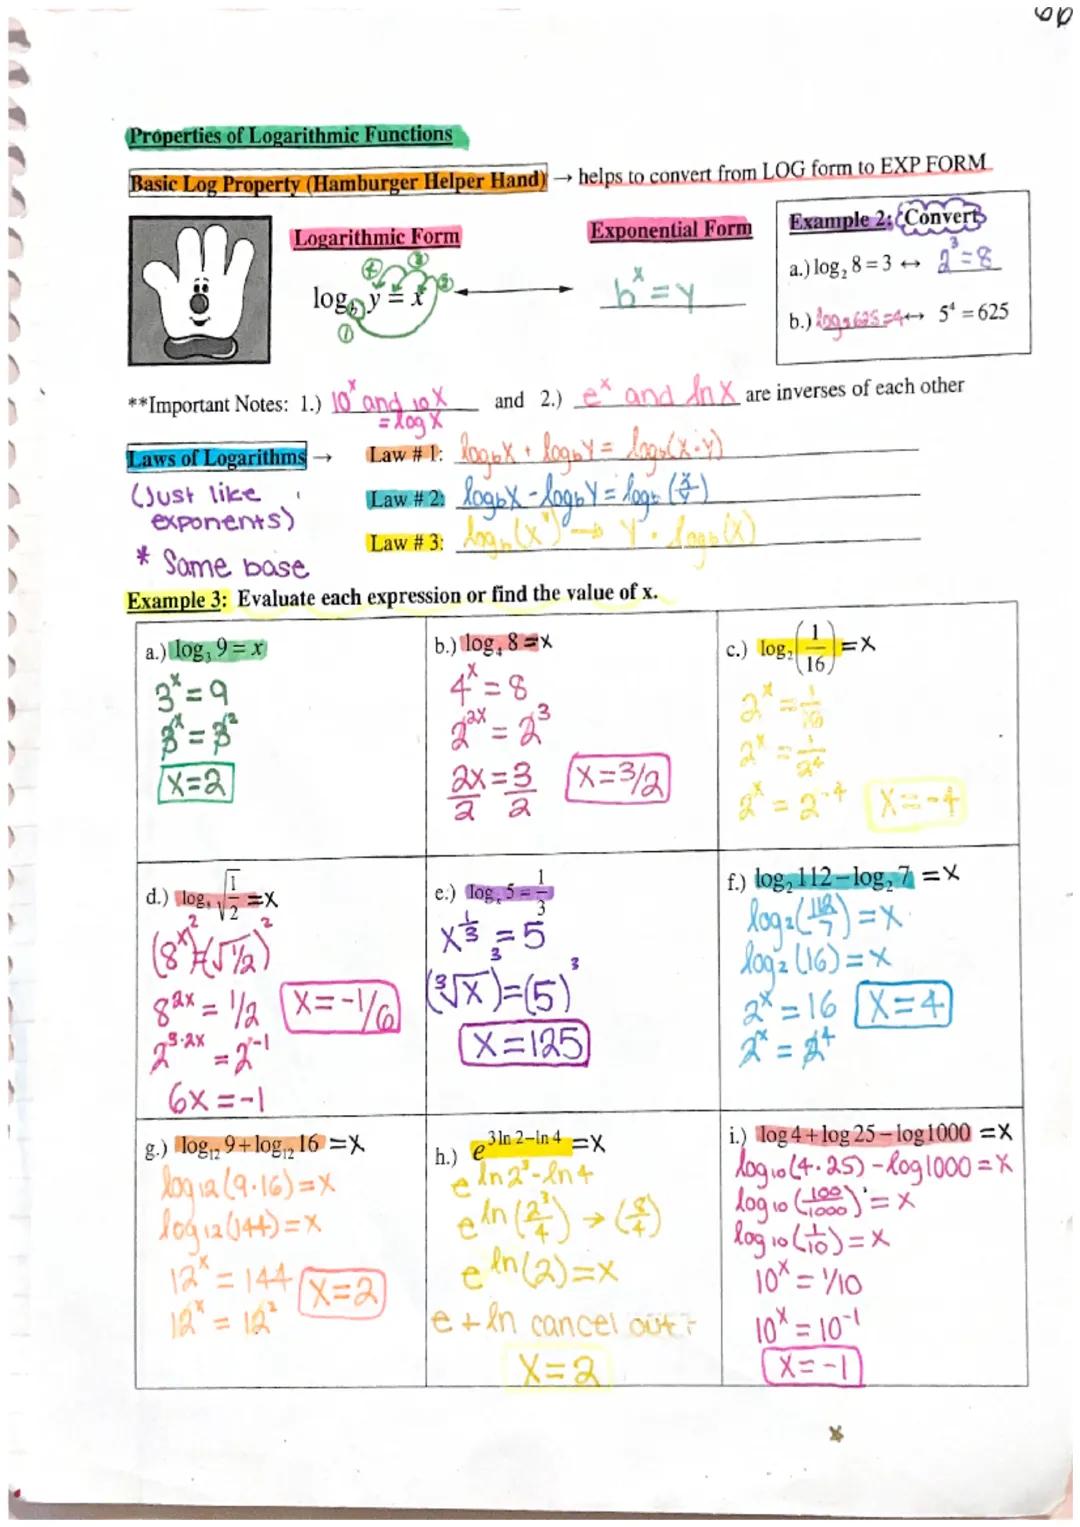 Properties of Logarithmic Functions
Basic Log Property (Hamburger Helper Hand) → helps to convert from LOG form to EXP FORM
Logarithmic Form
log_b y = x
① ② ③ ④
Exponential Form
b^x = y
Example 2: Convert
a.) log₂ 8 = 3 ↔ 2³ = 8
b.) log₅625=4 ↔ 5⁴ = 625
**Important Notes: 1.) 10^x and 10^x = log x and 2.) e^x and ln x are inverses of each other
Laws of Logarithms →
(Just like exponents)
* Same base
Law # 1: log_b x + log_b y = log_b(x·y)
Law # 2: log_b x - log_b y = log_b (x/y)
Law # 3: log_b(x^y) → y · log_b(x)
Example 3: Evaluate each expression or find the value of x.
a.) log₃ 9 = x
3^x = 9
3^x = 3²
x=2
b.) log₄ 8 = x
4^x = 8
2^2x = 2³
2x/2 = 3/2
x=3/2
c.) log₂(1/16) = x
2^x = 1/16
2^x = 1/2⁴
2^x = 2^-4
x=-4
d.) log₈ √(1/2) = x
(8^x)² = (√1/2)²
8^2x = 1/2
2^3·2x = 2^-1
6x = -1
x=-1/6
e.) log_x 5 = 1/3
x^1/3 = 5
(³√x)³ = (5)³
x=125
f.) log₂ 112 – log₂ 7 = x
log₂(112/7) = x
log₂(16) = x
2^x = 16
2^x = 2⁴
x=4
g.) log₁₂ 9 + log₁₂ 16 = x
log₁₂(9·16) = x
log₁₂(144) = x
12^x = 144
12^x = 12²
x=2
h.) e^(3 ln 2–ln 4) = x
e^(ln 2³-ln 4)
e^ln(2³/4) → (8/4)
e^ln(2) = x
e + ln cancel out
x=2
i.) log 4 + log 25 – log 1000 = x
log₁₀(4·25) - log 1000 = x
log₁₀(100/1000) = x
log₁₀(1/10) = x
10^x = 1/10
10^x = 10^-1
x=-1